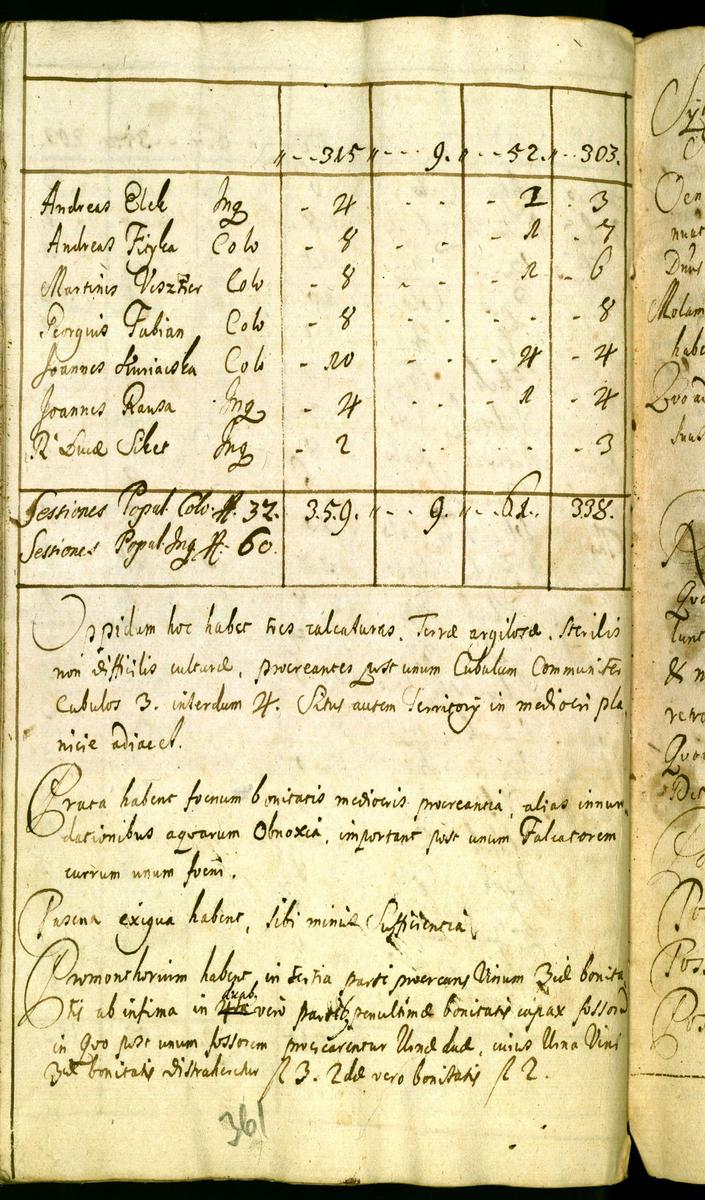 " - - 315 " - - 9. " - - 52. " - 303.
Andreas Elek Inq - 4 - - - 1 - 3
Andreas Fizka Colo - 8 - - - 1 - 7
Martinus Viszker Colo - 8 - - - 1 - 6
Georgius Fabian Colo - 8 - - - - - 8
Joannes Colo - 10 - - - 4 - 4
Joannes Rausa Inq - 4 - - - 1 - 4
Inq - 2 - - - 3
Sessiones Popul. Colo. ff. 32. 359. " - - 9. " - - 61. 338.
Sessiones Popul. Inq ff. 60.
Oppidum hoc habet tres calcaturas, Terræ argilosæ, sterilis
non difficilis culturæ, procreantes post unum Cubulum Communiter
Cubulos 3. interdum 4. Situs autem Territorÿ in mediocri pla
nicie adiacet.
Prata habent foenum bonitatis mediocris procreantia, alias innun
dationibus aquarum Obnoxia, important post unum Falcatorem
currum unum foeni.
Pascua exigua habent, sibi minus Sufficientia
Promonthorium habent, in tertia parte procreans Vinum 3æ bonita
tis ab infima in duab. vero partib. penultimæ bonitatis capax fossorũ
in Quo post unum fossorem procrearentur Urnæ duæ, cuius Urna Vini
3æ bonitatis distraheretur fl 3. 2dæ vero bonitatis fl 2.
361